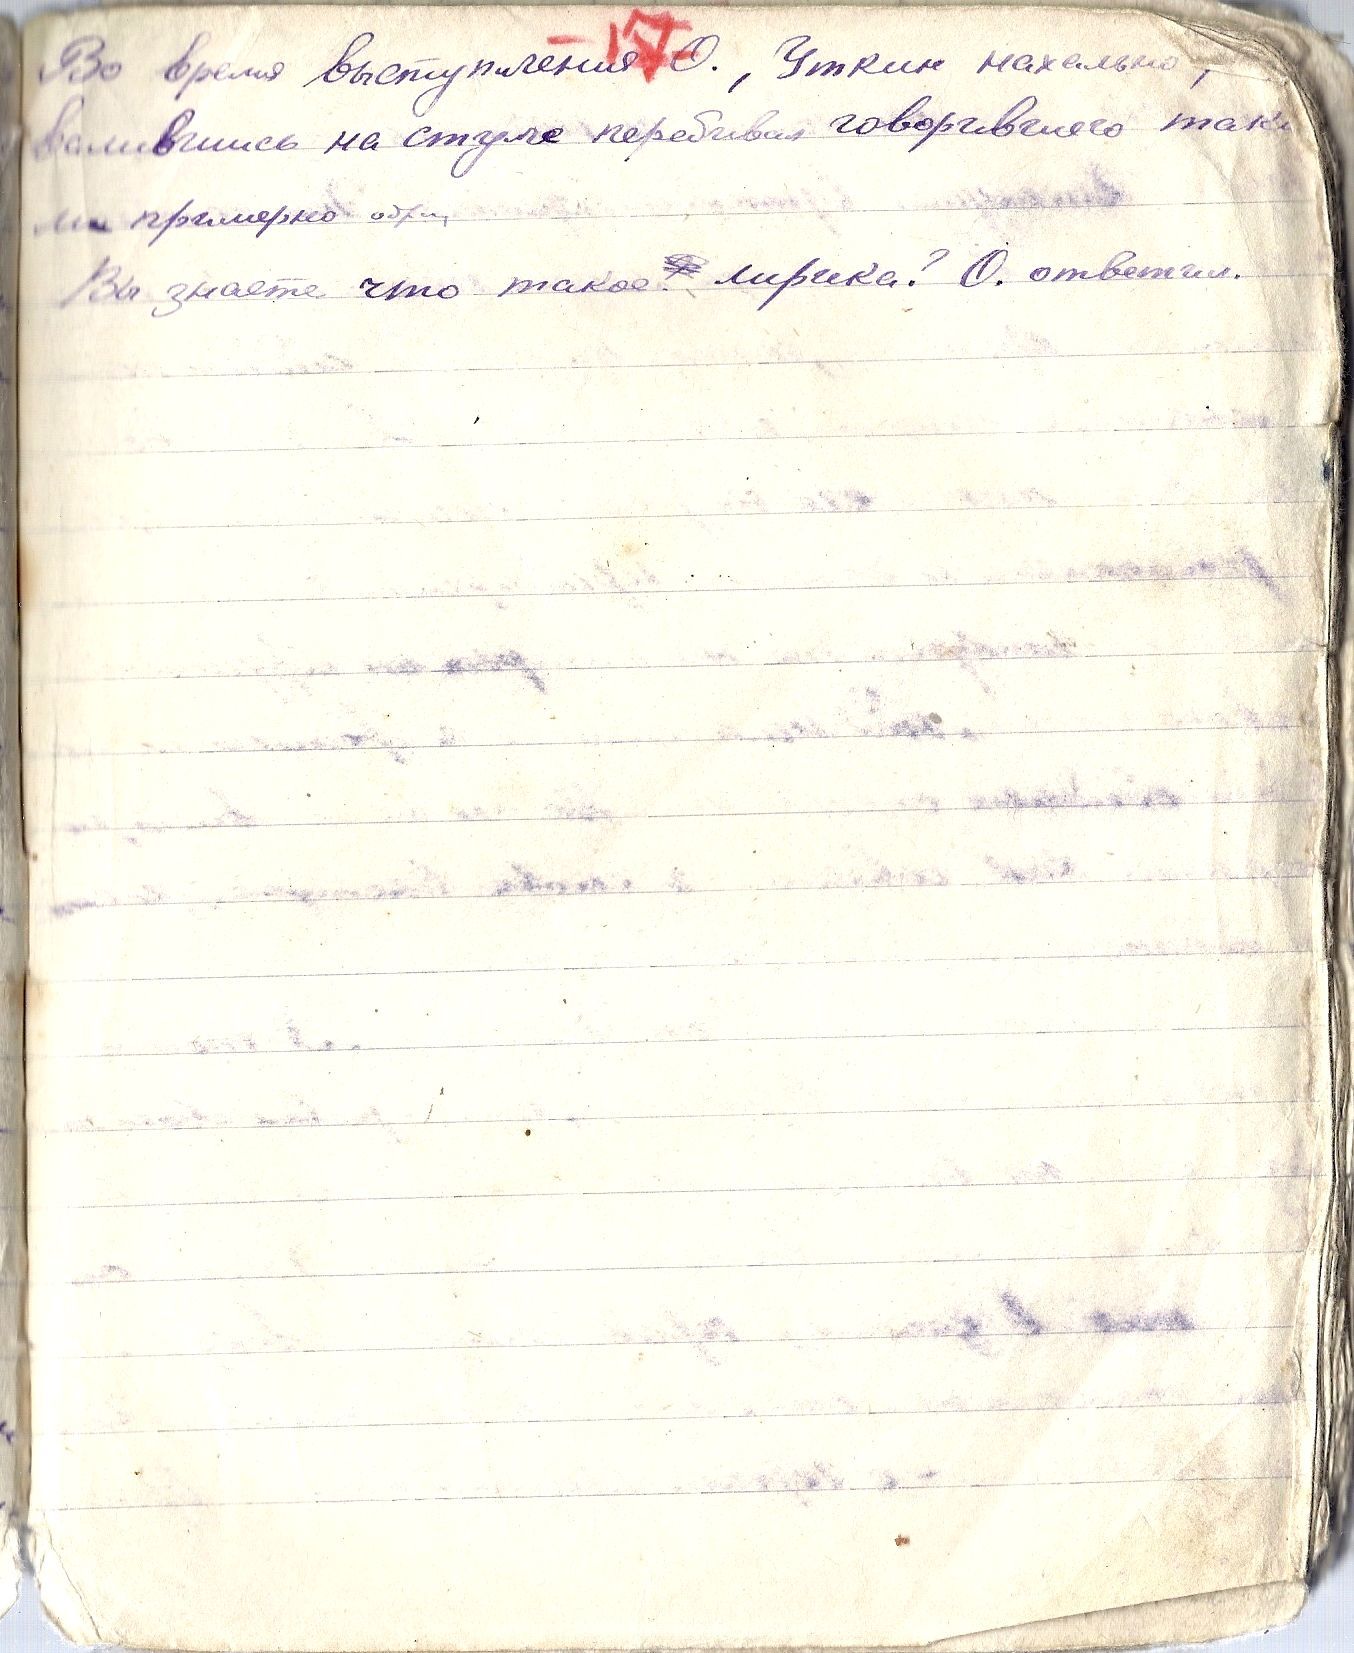 - 17 -
Во время выступления О., Уткин нахально,
валившись на стуле перебивал говорившего таки
ми примерно обр
Вы знаете что такое лирика? О. ответил.